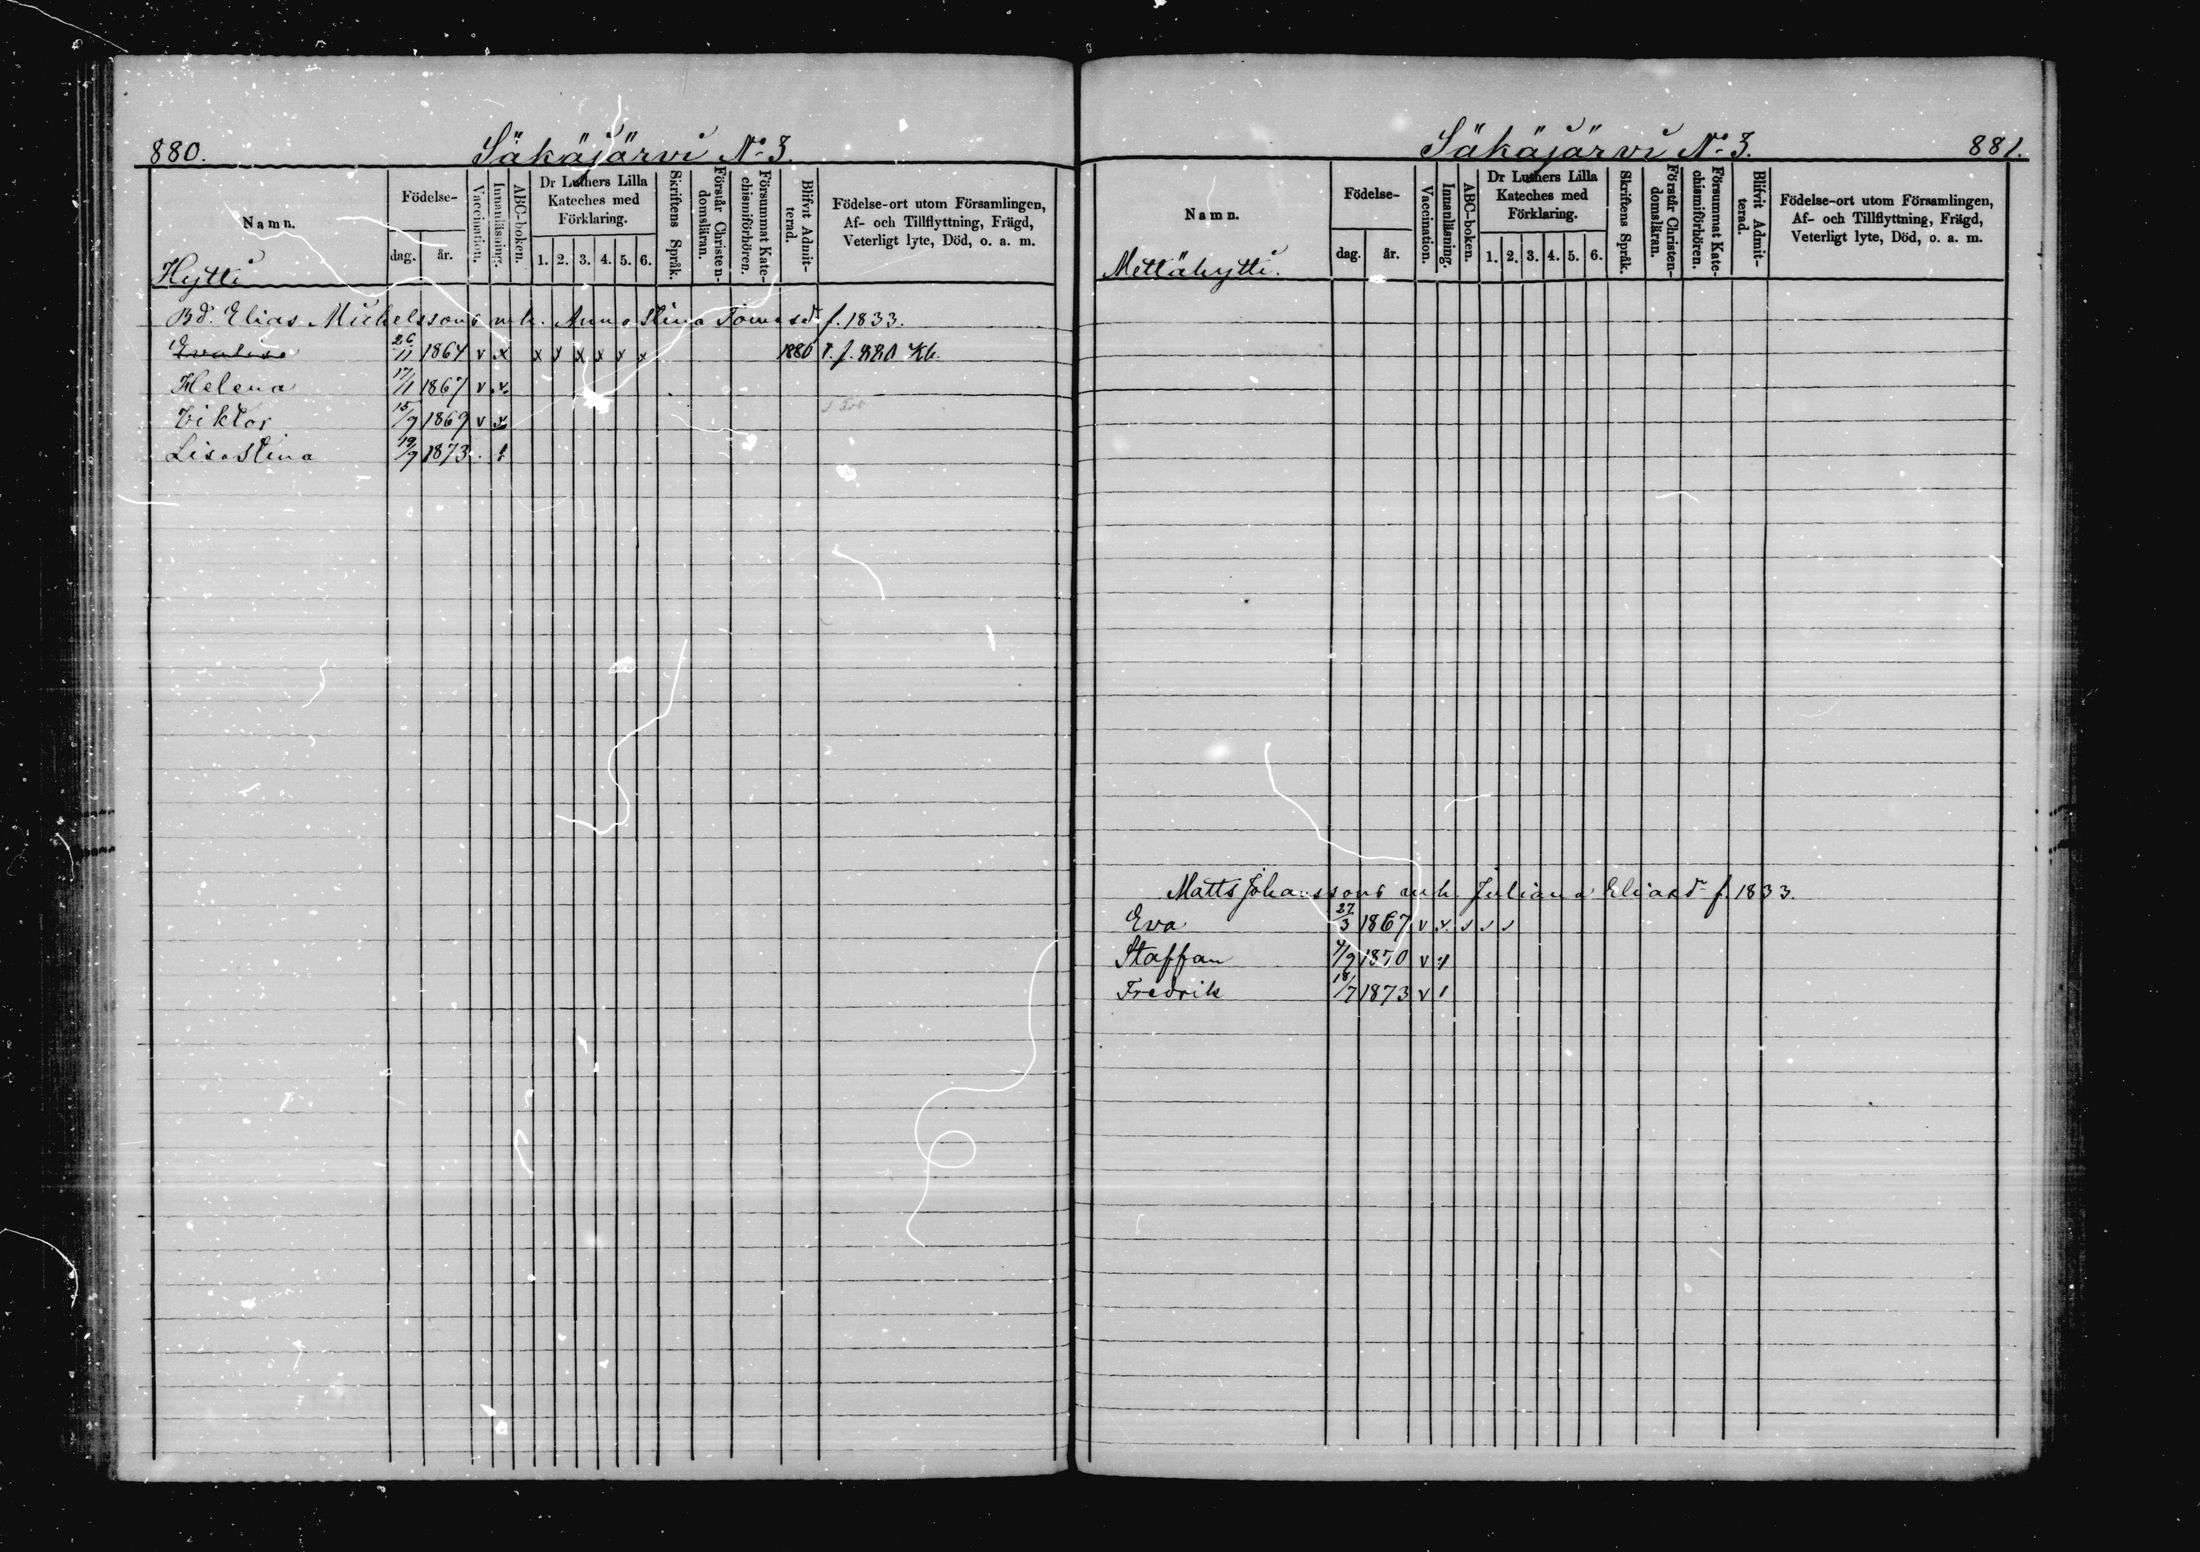 880. Säkäjärvi No 3.
Namn. Födelse- dag. år. Vaccination. Innanläsning. ABC-boken. Dr Luthers Lilla Kateches med Förklaring. 1. 2. 3. 4. 5. 6. Skriftens Språk. Förstår Christen-domsläran. Försummat Kate-chismiförhören. Blifvit Admit-terad. Födelse-ort utom Församlingen, Af- och Tillflyttning, Frägd, Veterligt lyte, Död, o. a. m.
Hytti
Bd. Elias Michelssons enk. Anna Stina Tomasdr f. 1833.
Evalisa 26/11 1864 v x x x x x x x 1880 T. f. 880 Kb.
Helena 17/1 1867 v x
Viktor 15/9 1869 v x
Lisa Stina 19/9 1873
Säkäjärvi No 3. 881.
Namn. Födelse- dag. år. Vaccination. Innanläsning. ABC-boken. Dr Luthers Lilla Kateches med Förklaring. 1. 2. 3. 4. 5. 6. Skriftens Språk. Förstår Christen-domsläran. Försummat Kate-chismiförhören. Blifvit Admit-terad. Födelse-ort utom Församlingen, Af- och Tillflyttning, Frägd, Veterligt lyte, Död, o. a. m.
Mettähytti.
Matts Johanssons enk. Juliana Eliasdr f. 1833.
Eva 27/3 1867 v v
Staffan 4/9 1870 v
Fredrik 18/7 1873 v